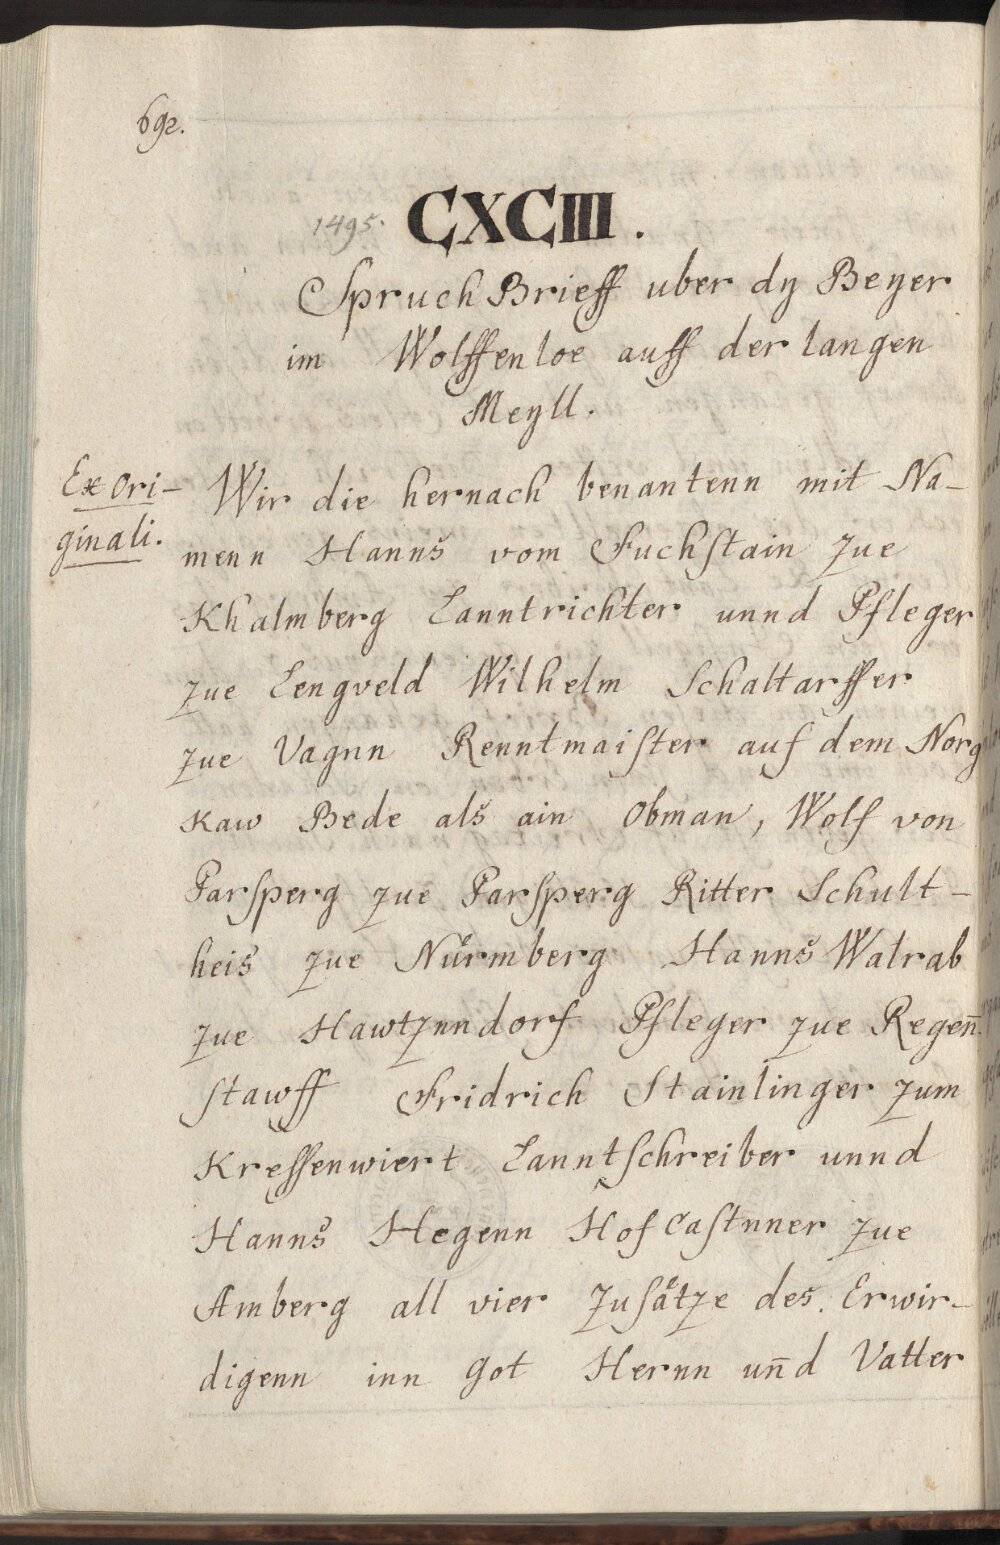 692.
1495. CXCIII.
Spruch Brieff uber dy Beyer
im Wolffenloe auff der langen
Meyll.
Ex ori-
ginali.
Wir die hernach benantenn mit Na-
menn Hanns vom Fuchſtain zue
Khalmberg Lanntrichter unnd Pfleger
zue Lengveld Wilhelm Schaltarffer
zue Vagnn Renntmaiſter auf dem Norg
kaw Bede als ain Obman, Wolf von
Parſperg zue Parſperg Ritter Schult-
heis zue Nürmberg Hanns Walrab
zue Hawtznndorf Pfleger zue Regen̅
ſtawff Fridrich Stainlinger zum
Kreſſenwiert Lanntſchreiber unnd
Hanns Hegenn Hof Caſtnner zue
Amberg all vier zuſätze des Erwir-
digenn inn Got Hernn un̅d Vatter